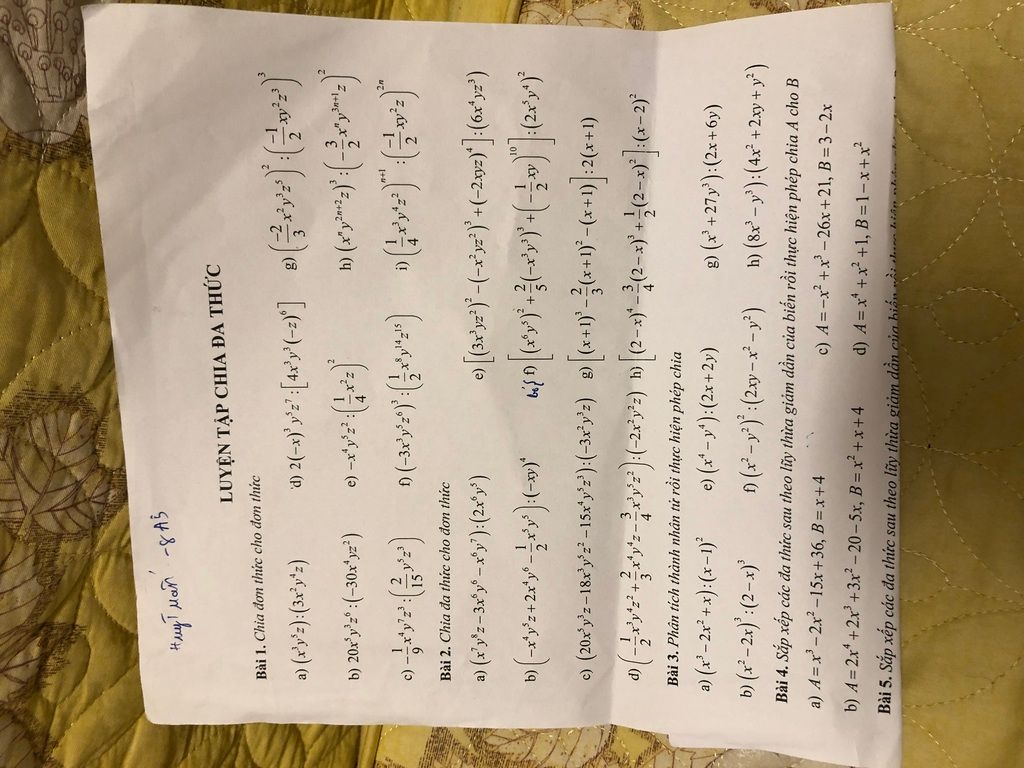 LUYỆN TẬP CHIA ĐA THỨC
Bài 1. Chia đơn thức cho đơn thức
a) (x³y⁵z):(3x²y⁴z) d) 2(−x)³y⁵z⁷:[4x³y³(−z)⁶] g) (−2/3 x²y³z⁵)²:(−1/2 xy²z³)³
b) 20x⁵y³z⁶:(−30x⁴yz²) e) −x⁴y⁵z²:(1/4 x²z)² h) (xⁿy²ⁿ⁺²z)³:(−3/2 xⁿy³ⁿ⁺¹z)²
c) −1/9 x⁴y⁷z³:(2/15 y⁵z³) f) (−3x³y⁵z⁶)³:(1/2 x⁸y¹⁴z¹⁵) i) (1/4 x³y⁴z²)ⁿ⁺¹:(−1/2 xy²z)²ⁿ
Bài 2. Chia đa thức cho đơn thức
a) (x⁷y⁸z−3x⁶y⁶−x⁶y⁷):(2x⁶y⁵) e) [(3x³yz²)²−(−x²yz²)³+(−2xyz)⁴]:(6x⁴yz³)
b) (−x⁴y⁵z+2x⁴y⁶−1/2 x⁵y⁵):(−xy)⁴ f) [(x⁶y⁵)²+2/5(−x³y³)³+(−1/2 xy)¹⁰]:(2x³y⁴)²
c) (20x³y³z−18x³y⁵z²−15x⁴y⁵z³):(−3x²y³z) g) [(x+1)³−2/3(x+1)²−(x+1)]:2(x+1)
d) (−1/2 x³y⁴z²+2/3 x⁴y⁴z−3/4 x³y⁵z²):(−2x²y²z) h) [(2−x)⁴−3/4(2−x)³+1/2(2−x)²]:(x−2)²
Bài 3. Phân tích thành nhân tử rồi thực hiện phép chia
a) (x³−2x²+x):(x−1)² e) (x⁴−y⁴):(2x+2y) g) (x³+27y³):(2x+6y)
b) (x²−2x)³:(2−x)³ f) (x²−y²)²:(2xy−x²−y²) h) (8x³−y³):(4x²+2xy+y²)
Bài 4. Sắp xếp các đa thức sau theo lũy thừa giảm dần của biến rồi thực hiện phép chia A cho B
a) A=x³−2x²−15x+36, B=x+4 c) A=−x²+x³−26x+21, B=3−2x
b) A=2x⁴+2x³+3x²−20−5x, B=x²+x+4 d) A=x⁴+x²+1, B=1−x+x²
Bài 5. Sắp xếp các đa thức sau theo lũy thừa giảm dần của biến rồi thực hiện phép